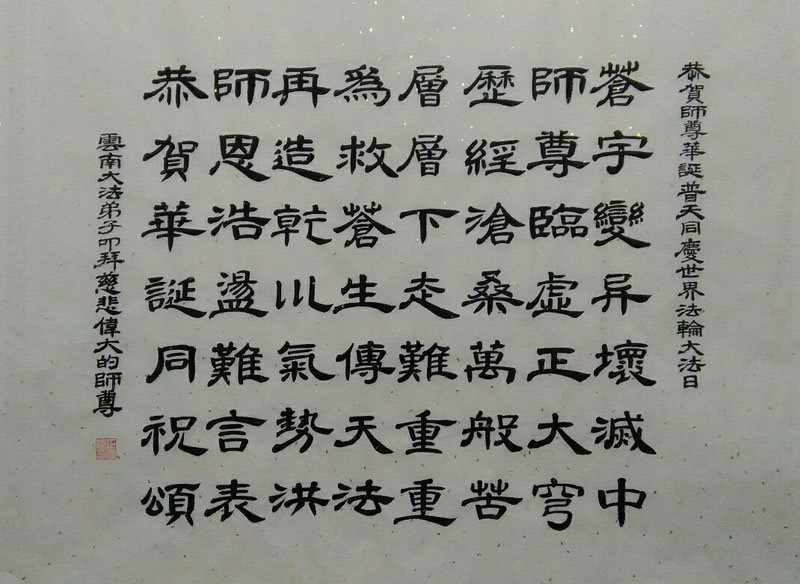 恭賀師尊華誕普天同慶世界法輪大法日
蒼宇變异壞滅中
師尊臨虛正大穹
歷經滄桑萬般苦
層層下走難重重
為救蒼生傳天法
再造乾川氣勢洪
師恩浩盪難言表
恭賀華誕同祝頌
雲南大法弟子叩拜慈悲偉大的師尊